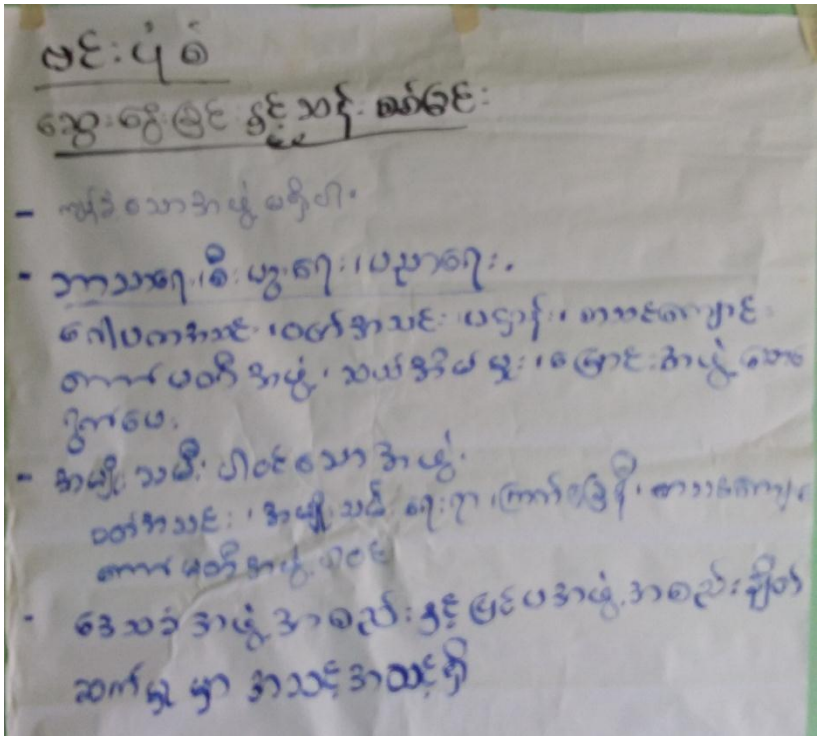 ဇင်းပုံစံ
ဆွေးနွေးခြင်းနှင့်သန့်စင်ခြင်း
- ကျန်ခဲ့သောအဖွဲ့မရှိပါ။
- ဘာသာရေး၊ စီးပွားရေး၊ ပညာရေး။
ဂေါပကအသင်း၊ ဝတ်အသင်း၊ ပဌာန်း၊ စာသင်ကျောင်း
ကော်မတီအဖွဲ့၊ ဆယ်အိမ်မှူး၊ မြောင်းအဖွဲ့
- အမျိုးသမီးပါဝင်သောအဖွဲ့။
ဝတ်အသင်း၊ အမျိုးသမီးရေးရာ၊ ကြက်ခြေနီ၊ စာသင်ကျောင်း
ကော်မတီအဖွဲ့ပါဝင်
- ဒေသခံအဖွဲ့အစည်းနှင့်ပြင်ပအဖွဲ့အစည်းချိတ်
ဆက်မှုမှာ အသင့်အတင့်ရှိ